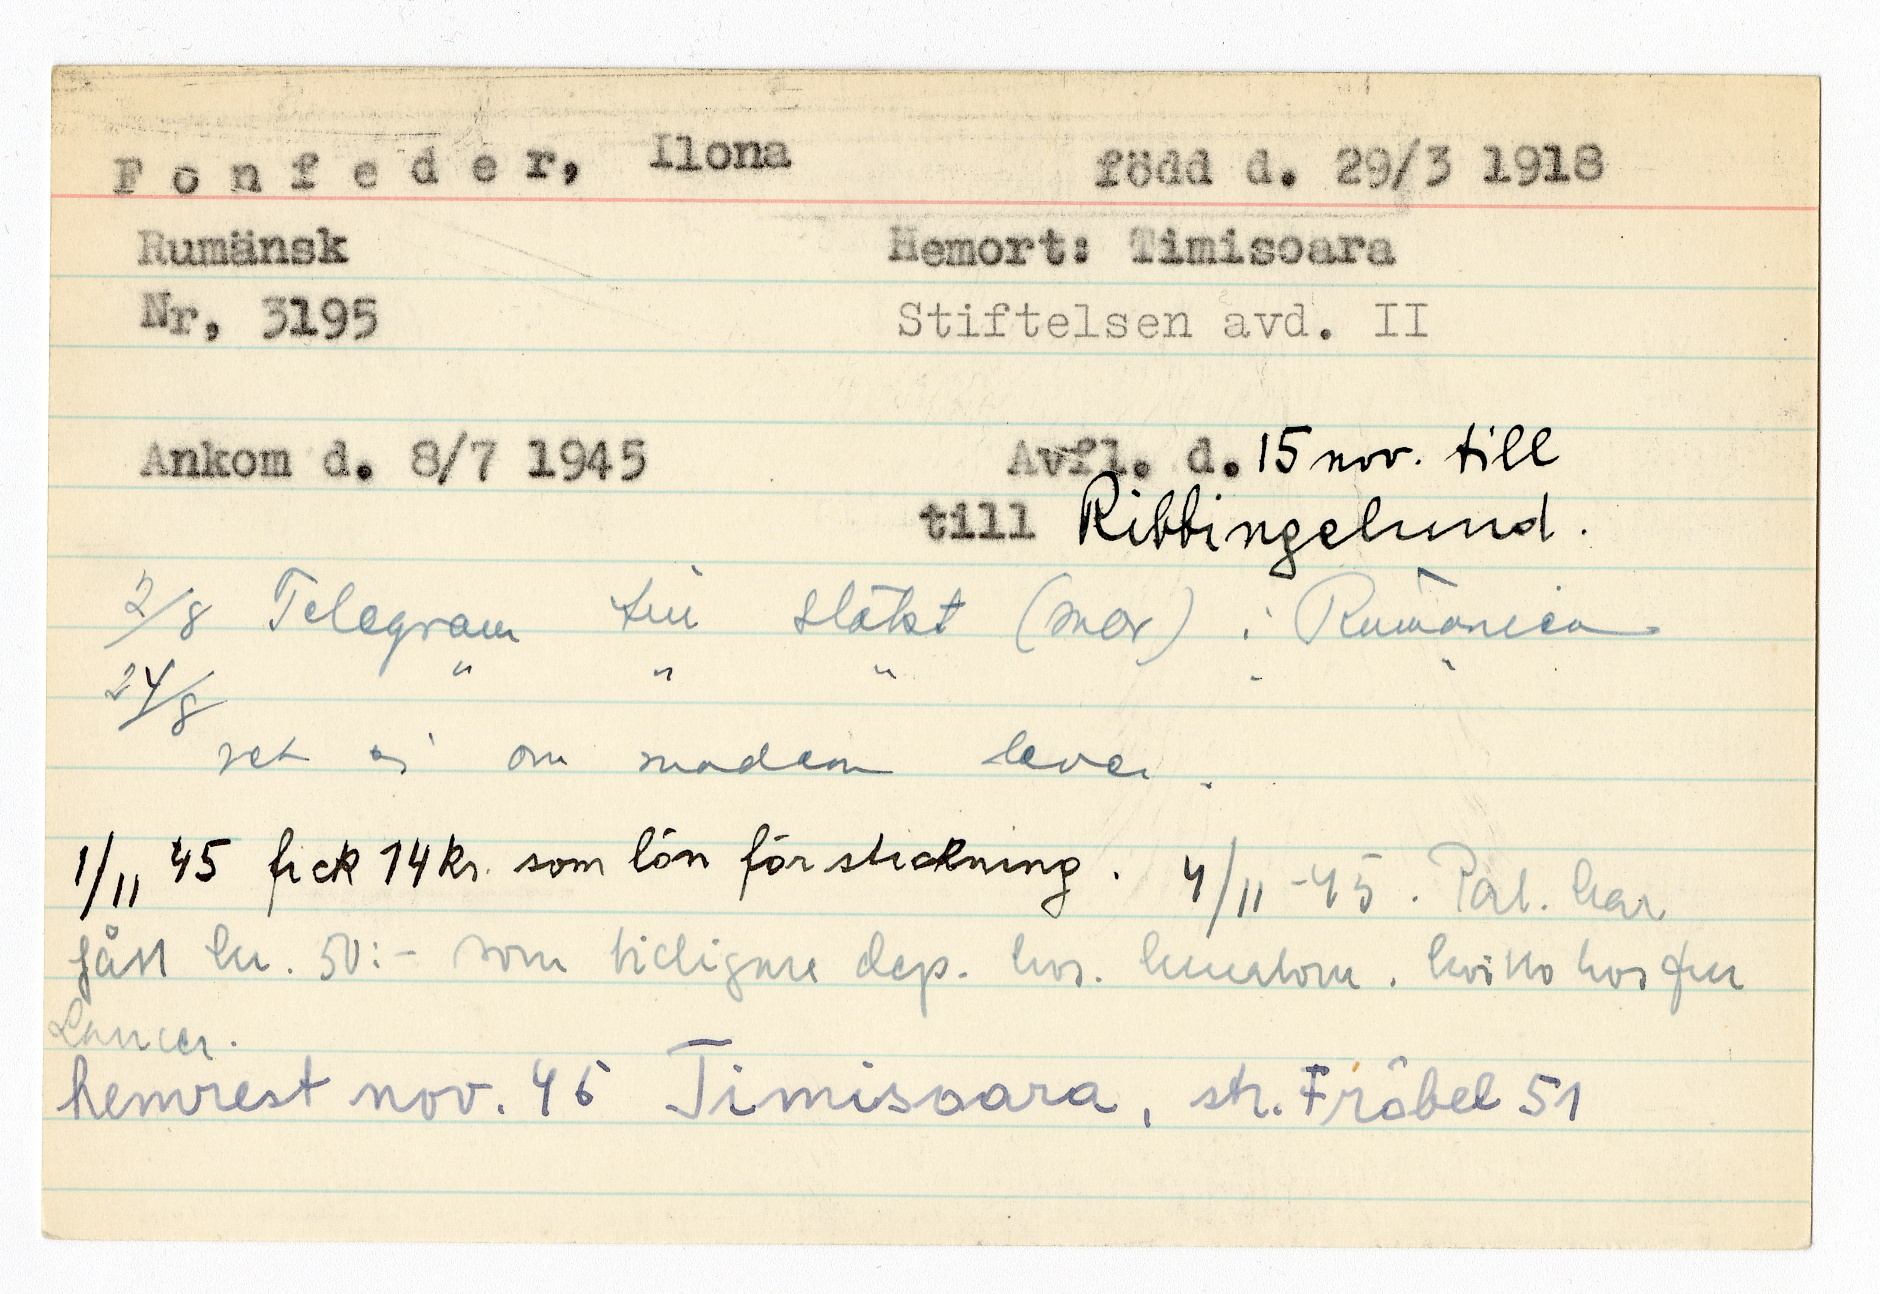 F o n f e d e r, Ilona född d. 29/3 1918
Rumänsk Hemort: Timisoara
Nr, 3195 Stiftelsen avd. II
Ankom d. 8/7 1945 Avfl. d. 15 nov. till
till Ribbingelund.
2/8 Telegram till släkt (mor) i Rumänien
24/8 " " " " "
vet ej om modern lever.
1/11 45 fick 14 kr. som lön för stickning. 4/11 -45. Pat. har
fått kr. 50:- som tidigare dep. hos. kuratorn. kvitto hos fru
hemrest nov. 45 Timisoara, str. Fröbel 51